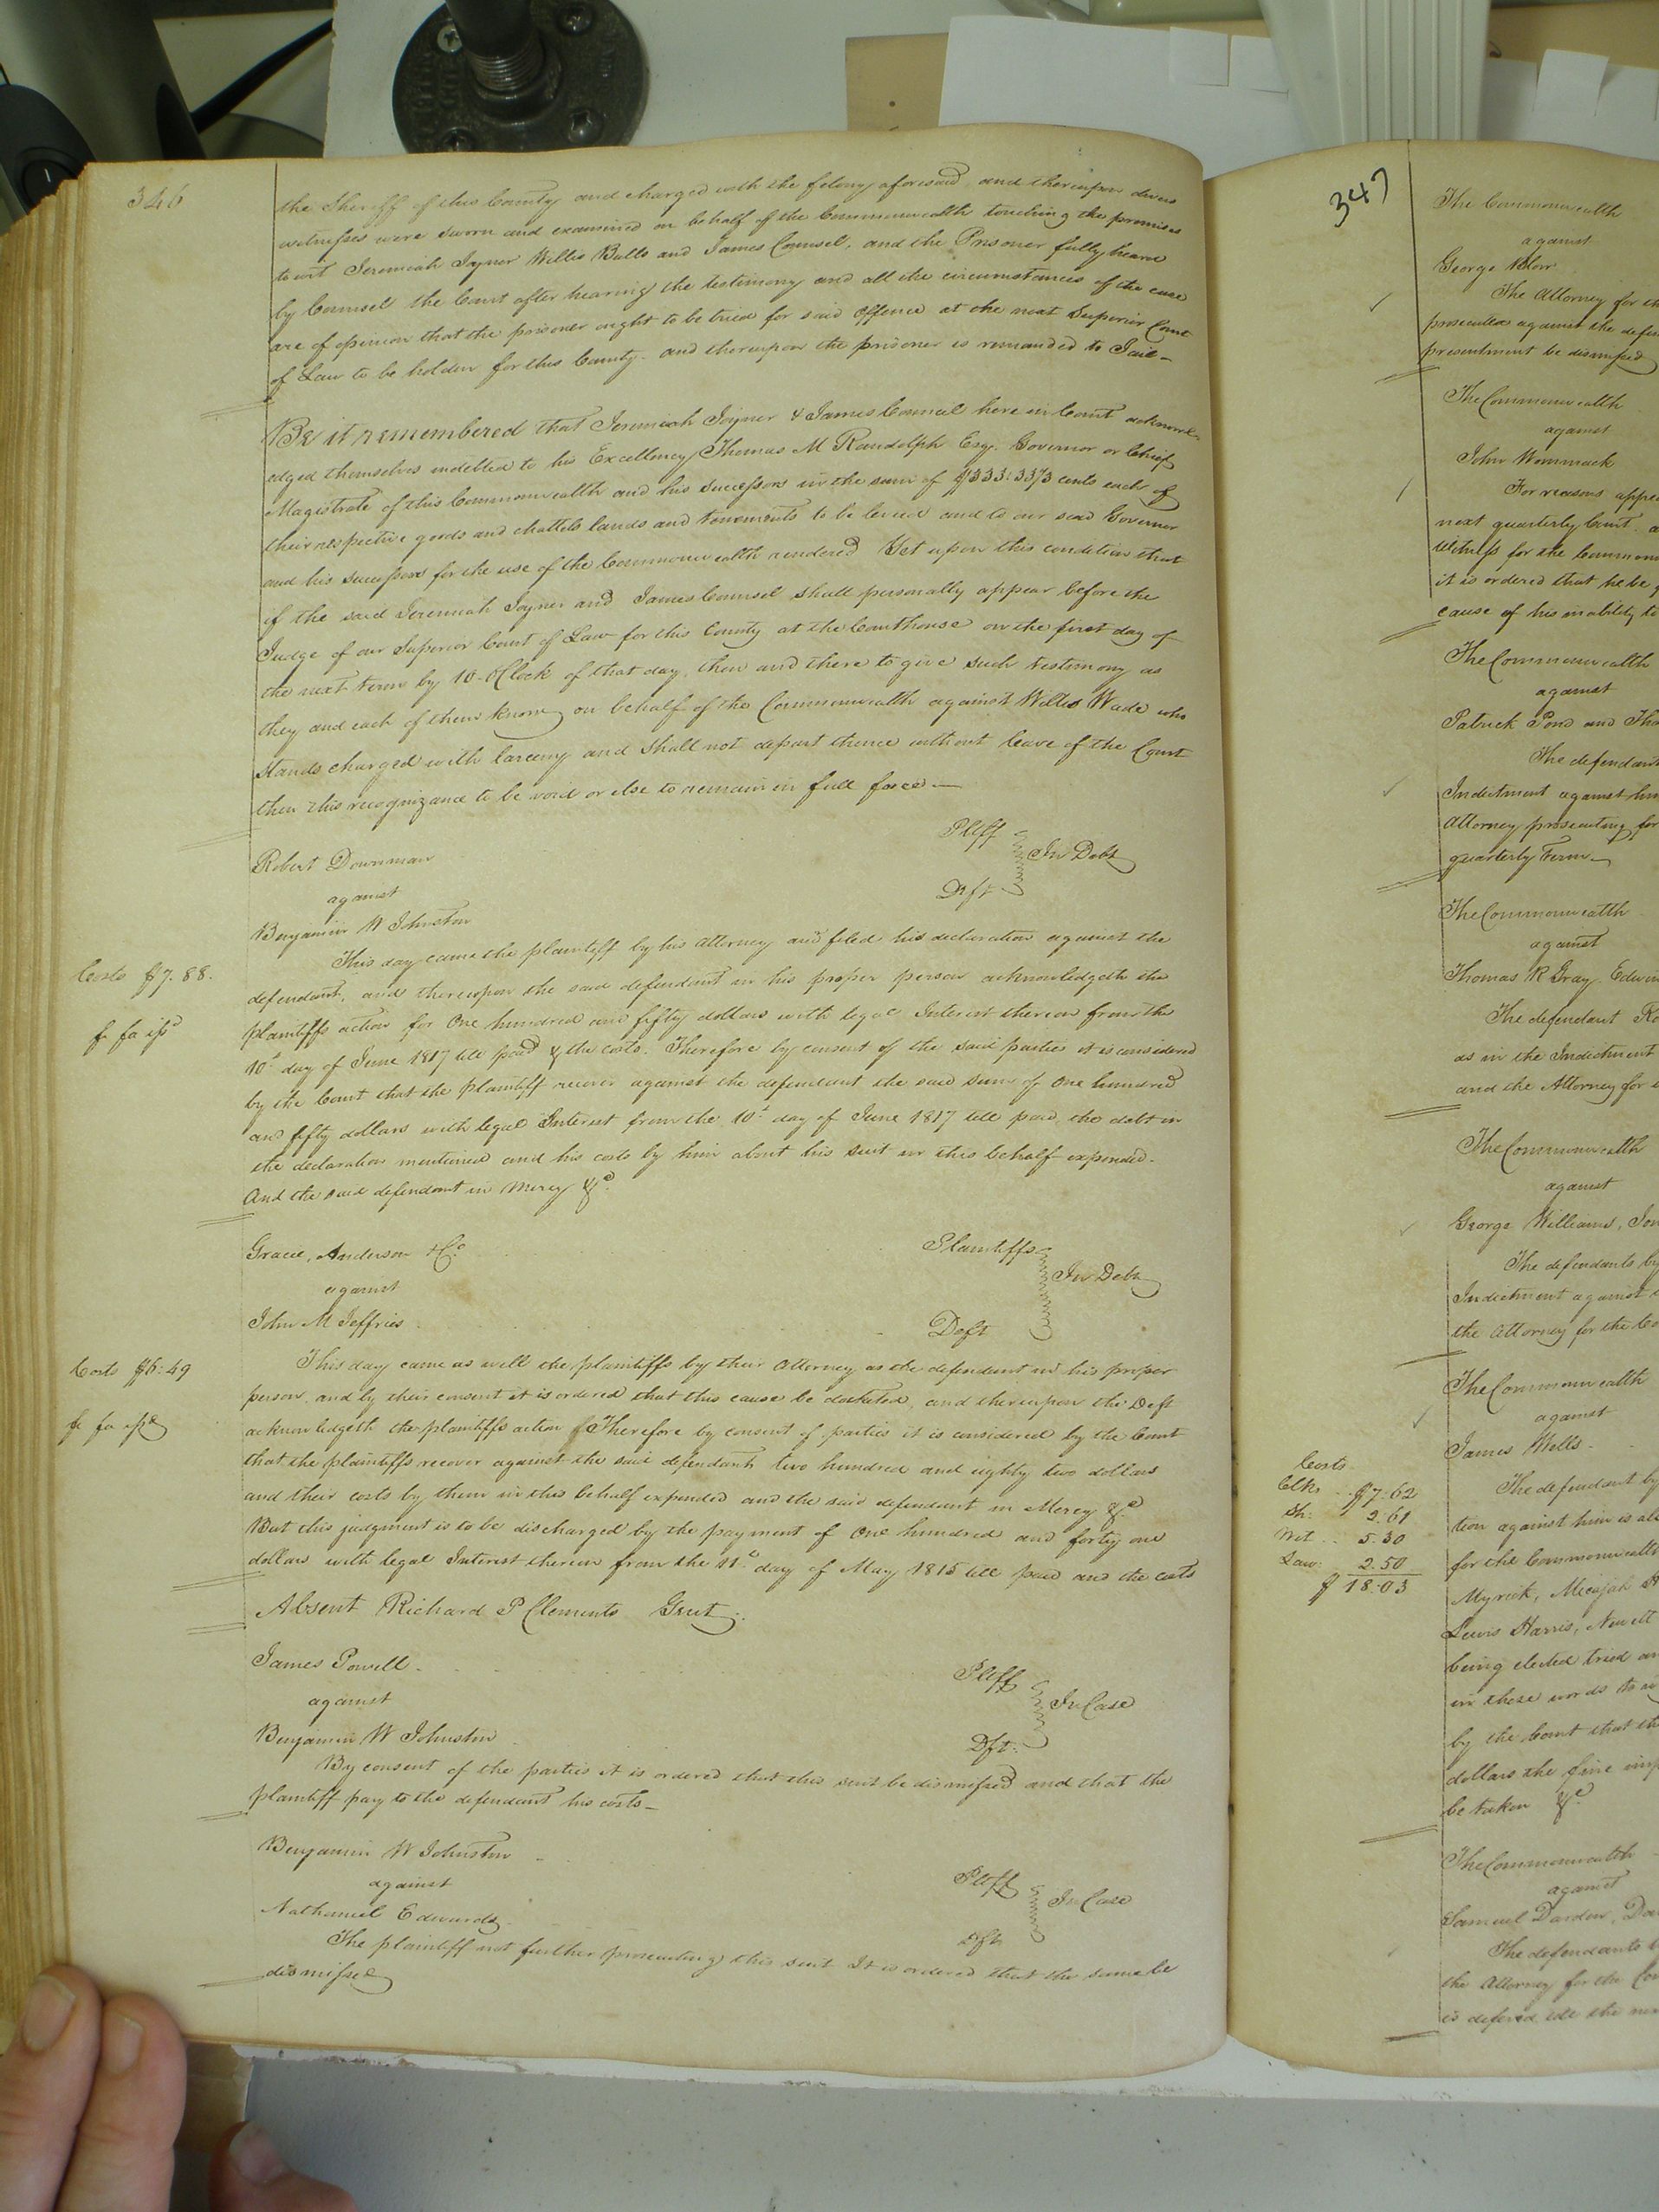 346
the Sheriff of this County and charged with the felony aforesaid, and thereupon divers
witnesses were sworn and examined on behalf of the Commonwealth touching the premises
to wit Jeremiah Joyner Willis Bulls and James Counsel, and the Prisoner fully heard
by Counsel the Court after hearing the testimony and all the circumstances of the case
are of opinion that the prisoner ought to be tried for said offence at the next Superior Court
of Law to be holden for this County. and thereupon the prisoner is remanded to Jail—
Be it remembered that Jeremiah Joyner & James Counsel here in Court acknowl-
edged themselves indebted to his Excellency Thomas M Randolph Esqr. Governor or Chief
Magistrate of this Commonwealth and his successors in the sum of $333:33⅓ cents each of
their respective goods and chattels lands and tenements to be levied and to our said Governor
and his successors for the use of the Commonwealth rendered Yet upon this condition that
if the said Jeremiah Joyner and James Counsel shall personally appear before the
Judge of our Superior Court of Law for this County at the Courthouse on the first day of
the next term by 10 OClock of that day, then and there to give such testimony as
they and each of them know on behalf of the Commonwealth against Willis Wade who
stands charged with larceny and shall not depart thence without leave of the Court
then this recognizance to be void or else to remain in full force—
Robert Downman Pltff
against In Debt
Benjamin W Johnston Deft
This day came the plaintiff by his Attorney and filed his declaration against the
Costs $7.88.
defendant, and thereupon the said defendant in his proper person acknowledgeth the
plaintiffs action for One hundred and fifty dollars with legal Interest thereon from the
fi fa issd
10t day of June 1817 till paid & the costs. Therefore by consent of the said parties it is considered
by the Court that the plaintiff recover against the defendant the said sum of One hundred
and fifty dollars with legal Interest from the 10t day of June 1817 till paid, the debt in
the declaration mentioned and his costs by him about his suit in this behalf expended.
And the said defendant in Mercy &c
Gracie, Anderson & Co Plaintiffs
against In Debt
John M Jeffries Deft
Costs $6:49
This day came as well the plaintiffs by their Attorney as the defendant in his proper
person, and by their consent it is ordered that this cause be docketed, and thereupon the Deft
fi fa issd
acknowledgeth the plaintiffs action Therefore by consent of parties it is considered by the Court
that the plaintiffs recover against the said defendant two hundred and eighty two dollars
and their costs by them in this behalf expended and the said defendant in Mercy &c
But this judgment is to be discharged by the payment of One hundred and forty one
dollars with legal Interest thereon from the day of May 1815 till paid and the costs
Absent Richard P Clements Gent.
James Powell Pltff
against In Case
Benjamin W Johnston Dft.
By consent of the parties it is ordered that this suit be dismissed and that the
plaintiff pay to the defendant his costs—
Benjamin W Johnston Pltff
against In Case
Nathaniel Edwards Dft
The plaintiff not further prosecuting this suit It is ordered that the same be
dismissed
347
The Commonwealth
against
George
The Attorney for
prosecutes against the
presentment be dismissed
The Commonwealth
against
John Wommack
For reasons
next quarterly Court
Witness for the
it is ordered that he be
cause of his inability to
The Commonwealth
against
Patrick Pond and
The defendant
Indictment against
Attorney prosecuting for
quarterly Term—
The Commonwealth
against
Thomas R Gray,
The defendant
as in the Indictment
and the Attorney for
The Commonwealth
against
George Williams,
The defendants by
Indictment against
the Attorney for the
The Commonwealth
against
James Wells
Costs
Clks $7.62
Sh. 2.61
Wit 5.30
Law: 2.50
$18.03
The defendant by
tion against him is
for the Commonwealth
Myrick, Micajah
Lewis Harris, Newitt
being elected tried
in these words to
by the Court that
dollars the fine
be taken &c
The Commonwealth
against
Samuel Darden,
The defendants
the Attorney for the
is deferred till the